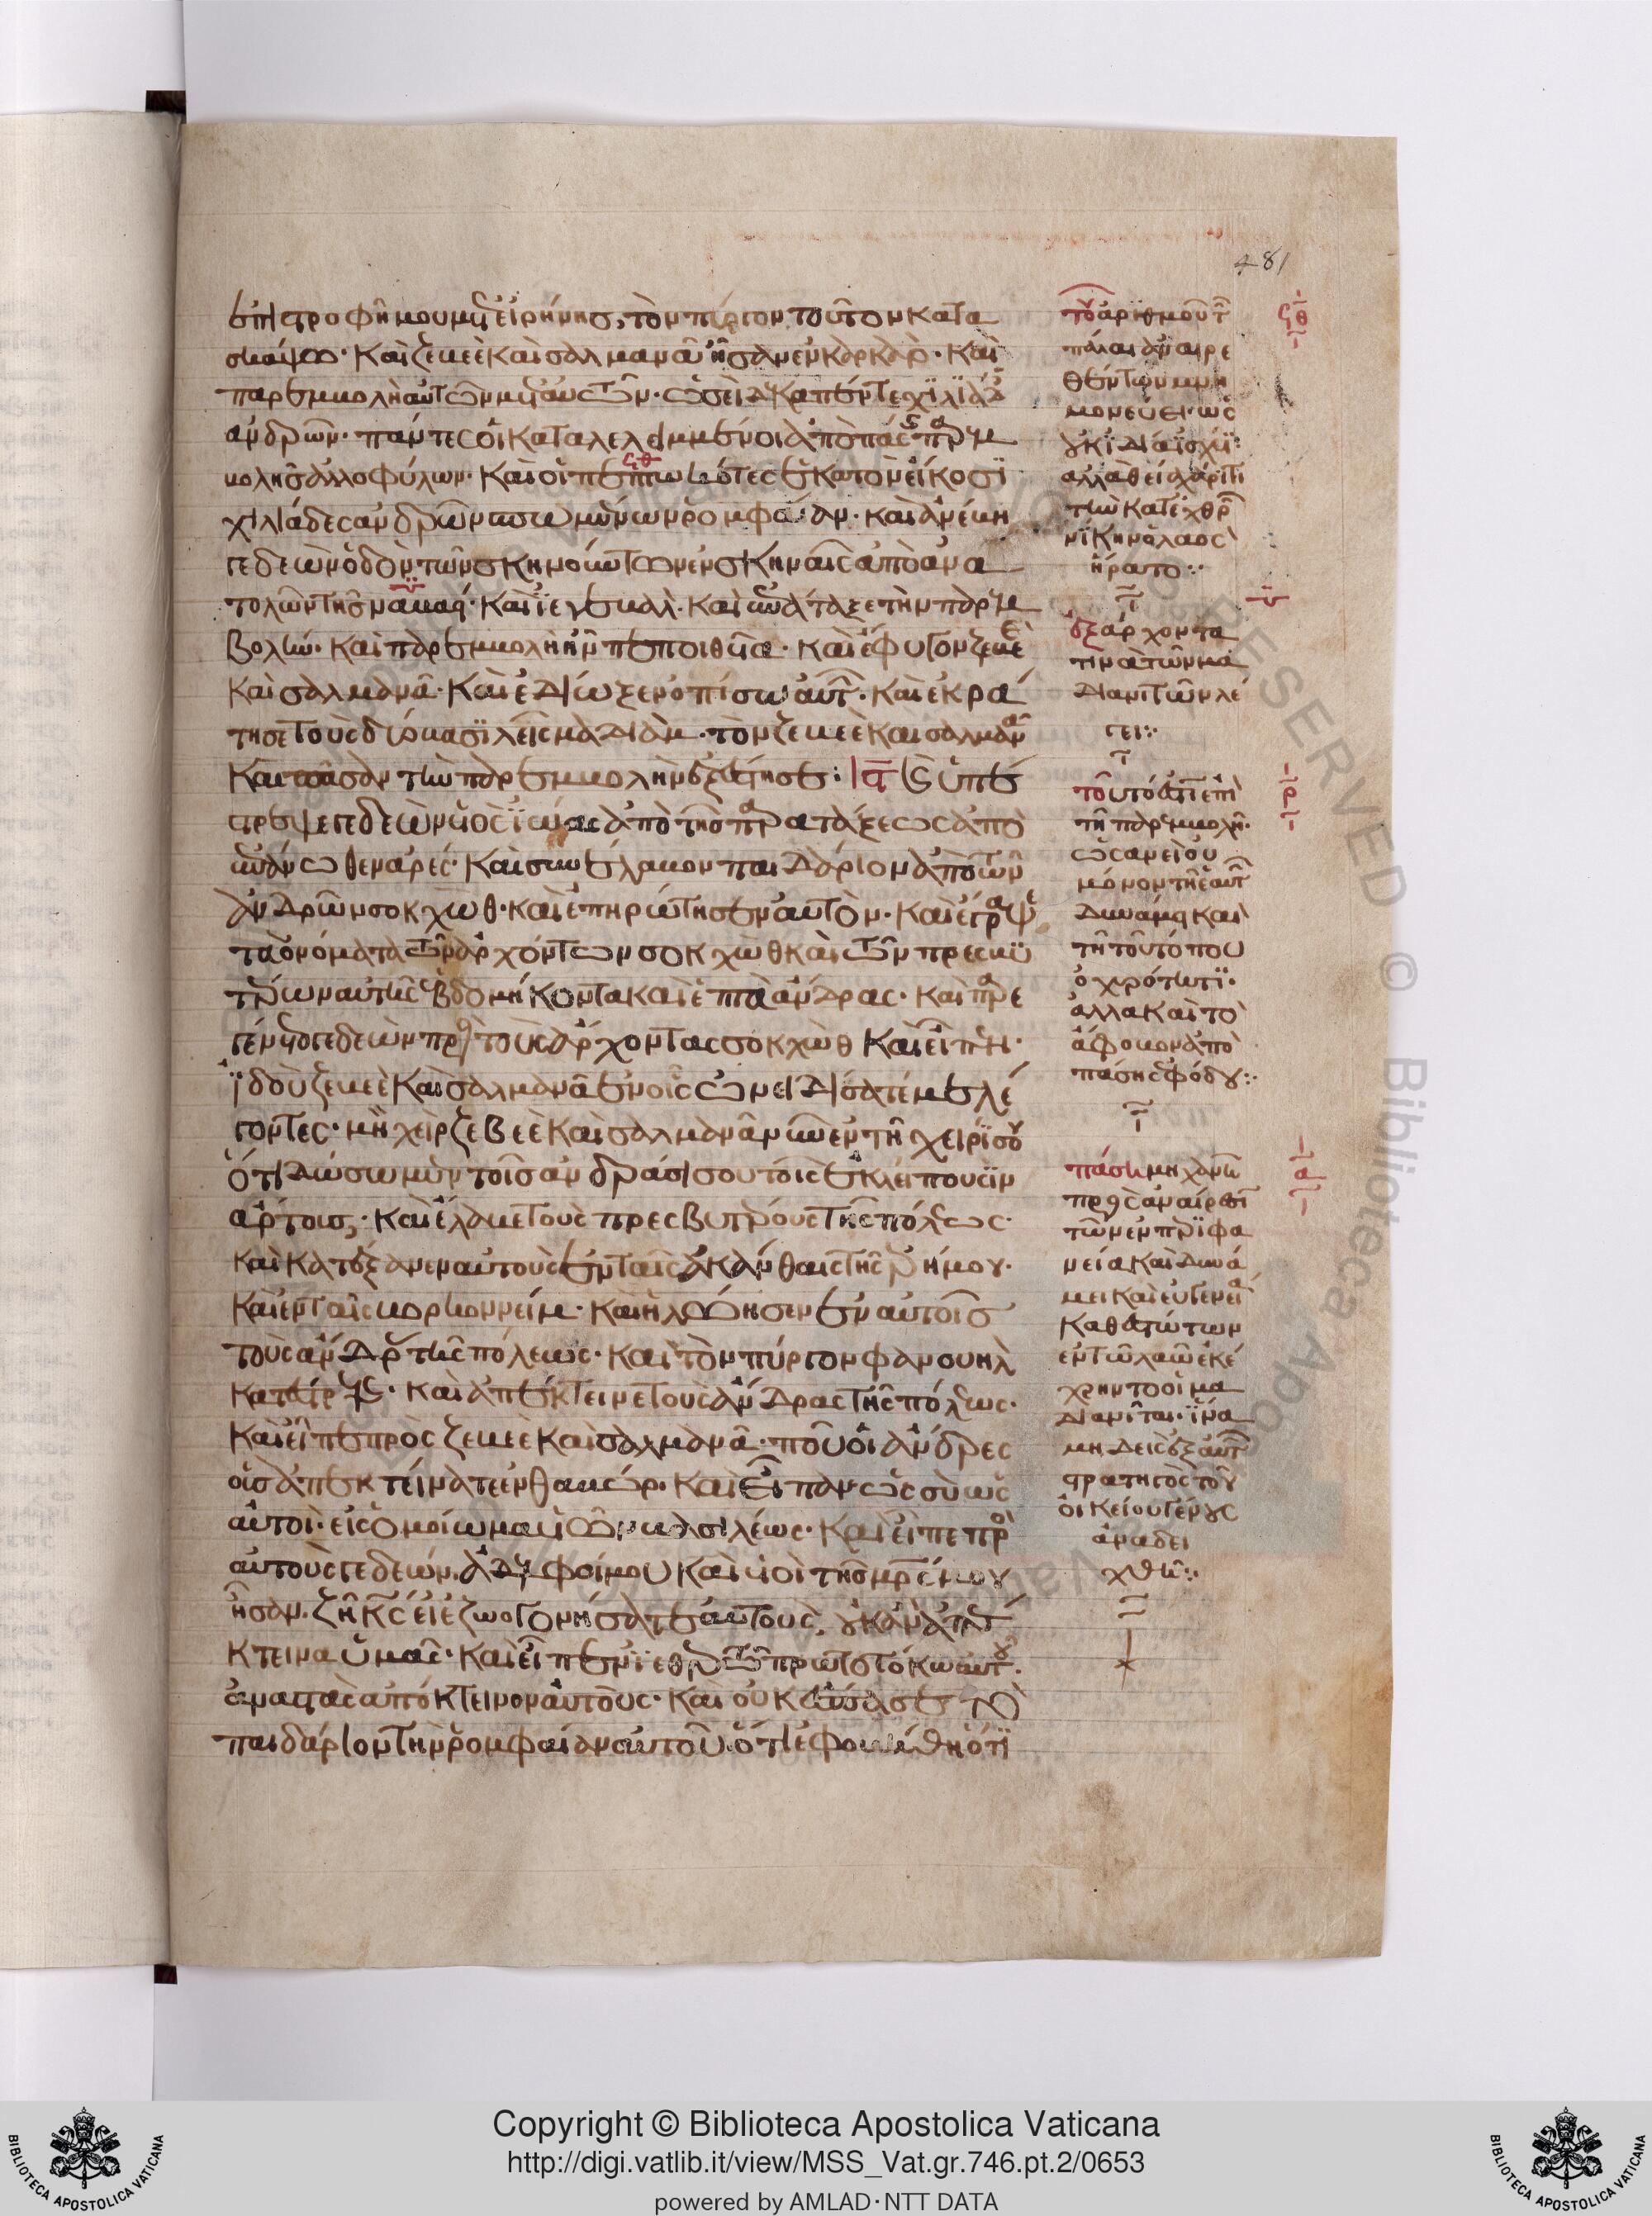 481
ἐπιστροφῆ μου μετ' εἰρήνης, τὸν πύργον τοῦτον κατα
σκάψω· καὶ ζεβεὲ καὶ σαλμανᾶ ἦσαν ἐν καρκάρ· καὶ
παρεμβολὴ αὐτῶν μετ' αὐτῶν· ὡσεὶ δεκαπέντε χιλιάδ
ἀνδρῶν· πάντες οἱ καταλελειμμένοι ἀπὸ πάσ παρεμ
βολῆς ἀλλοφύλων· καὶ οἱ πεπτωκότες ἑκατὸν εἴκοσι
χιλιάδες ἀνδρῶν σπωμένων ῥομφαίαν· καὶ ἀνέβη
γεδεὼν ὁδὸν τῶν σκηνούντων ἐν σκηναῖς ἀπὸ ἀνα
τολῶν τῆς
βολήν· καὶ παρεμβολὴ ἦν πεποιθυῖα· καὶ ἔφυγον ζεβεὲ
καὶ σαλμανᾶ· καὶ ἐδίωξεν ὀπίσω αὐτ· καὶ ἐκρά
τησε τοὺς δύο βασιλεῖς μαδιάμ· τὸν ζεβεὲ καὶ σαλμαν
καὶ πᾶσαν τὴν παρεμβολὴν ἐξέστησε: Καὶ ὑπέ
στρεψε γεδεὼν υἱὸς ἰωὰς ἀπὸ τῆς παρατάξεως ἀπὸ
ἀνάνωθεν ἀρές· καὶ συνέλαβον παιδάριον ἀπὸ τῶν
ἀνδρῶν σοκχώθ· καὶ ἐπηρώτησεν αὐτόν· καὶ ἔγραψε
τὰ ὀνόματα τῶν ἀρχόντων σοκχὼθ καὶ τῶν πρεσβυ
τέρων αὐτῆς ἑβδομήκοντα καὶ ἑπτὰ ἄνδρας· καὶ παρε
γένετο γεδεὼν πρὸς τοὺς ἄρχοντας σοκχὼθ καὶ εἶπεν·
ἰδοὺ ζεβεὲ καὶ σαλμανᾶ ἐν οἷς ὠνειδίσατέ με λέ
γοντες· μὴ χεὶρ ζεβεὲ καὶ σαλμανᾶ νῦν ἐν τῇ χειρί σου
ὅτι δώσωμεν τοῖς ἀνδράσι σου τοῖς ἐκλείπουσιν
ἄρτους; καὶ ἔλαβε τοὺς πρεσβυτέρους τῆς πόλεως·
καὶ κατέξανεν αὐτοὺς ἐν ταῖς ἀκάνθαις τῆς ἐρήμου·
καὶ ἐν ταῖς βορκοννείμ· καὶ ἠλόησεν ἐν αὐτοῖς
τοὺς ἄνδρ τῆς πόλεως· καὶ τὸν πύργον φανουὴλ
κατέστρεψε· καὶ ἀπέκτεινε τοὺς ἄνδρας τῆς πόλεως·
καὶ εἶπε πρὸς ζεβεὲ καὶ σαλμανᾶ· ποῦ οἱ ἄνδρες
οὓς ἀπεκτείνατε ἐν θαβώρ· καὶ εἶπαν· ὡς σὺ ὡς
αὐτοί· εἰς ὁμοίωμα υἱῶν βασιλέως· καὶ εἶπε πρὸ
αὐτοὺς γεδεών, ἀδελφοί μου καὶ υἱοὶ τῆς μρς μου
ἦσαν· ζῆ κς εἰ ἐζωογονήσατε αὐτούς, οὐκ ἂν ἀπέ
κτεινα ὑμᾶς· καὶ εἶπεν ἰεθὲρ τῶ πρωτοτόκω αὐτοῦ·
ἀναστὰς ἀπόκτεινον αὐτούς· καὶ οὐκ ἔσπασε τὸ
παιδάριον τὴν ῥομφαίαν αὐτοῦ ὅτι ἐφοβήθη ὅτι
τοῦ ἀριθμοῦ τ
πάλαι ἀναιρε
θέντων μνη
μονεύει· ὡς
οὐκ ἰδία ἰσχύϊ:
ἀλλὰ θεία χάριτι
τὴν κατ' ἐχθρ
νίκην ὁ λαὸς
ἤρατο:·
ἐξάρχοντα
τινὰ τῶν μα
διανιτῶν λέ
γει:·
τοῦτό ἐστι ἐπὶ
τῆ παρεμβολῆ·
ὡσανεὶ οὐ
μόνον τῆ ἑαυτ
δυνάμει καὶ
τῆ τοῦ τόπου
ὀχυρότητι·
ἀλλὰ καὶ τὸ
ἄφοβον ἀπὸ
πάσης ἐφόδου:·
πάση μηχανῆ
πρὸς ἀναίρεσι
τῶν ἐν περιφα
νεία καὶ δυνά
μει καὶ εὐγενεί
καθεστώτων
ἐν τῶ λαῶ ἐκέ
χρηντο οἱ μα
διανῖται· ἵνα
μηδεὶς ἐξ αὐτ
στρατηγὸς τοῦ
οἰκείου γένους
ἀναδει
χθῆ:·
RESERVED © Biblioteca Apostolica Vaticana
Copyright © Biblioteca Apostolica Vaticana
http://digi.vatlib.it/view/MSS_Vat.gr.746.pt.2/0653
powered by AMLAD·NTT DATA
BIBLIOTECA APOSTOLICA VATICANA
BIBLIOTECA APOSTOLICA VATICANA